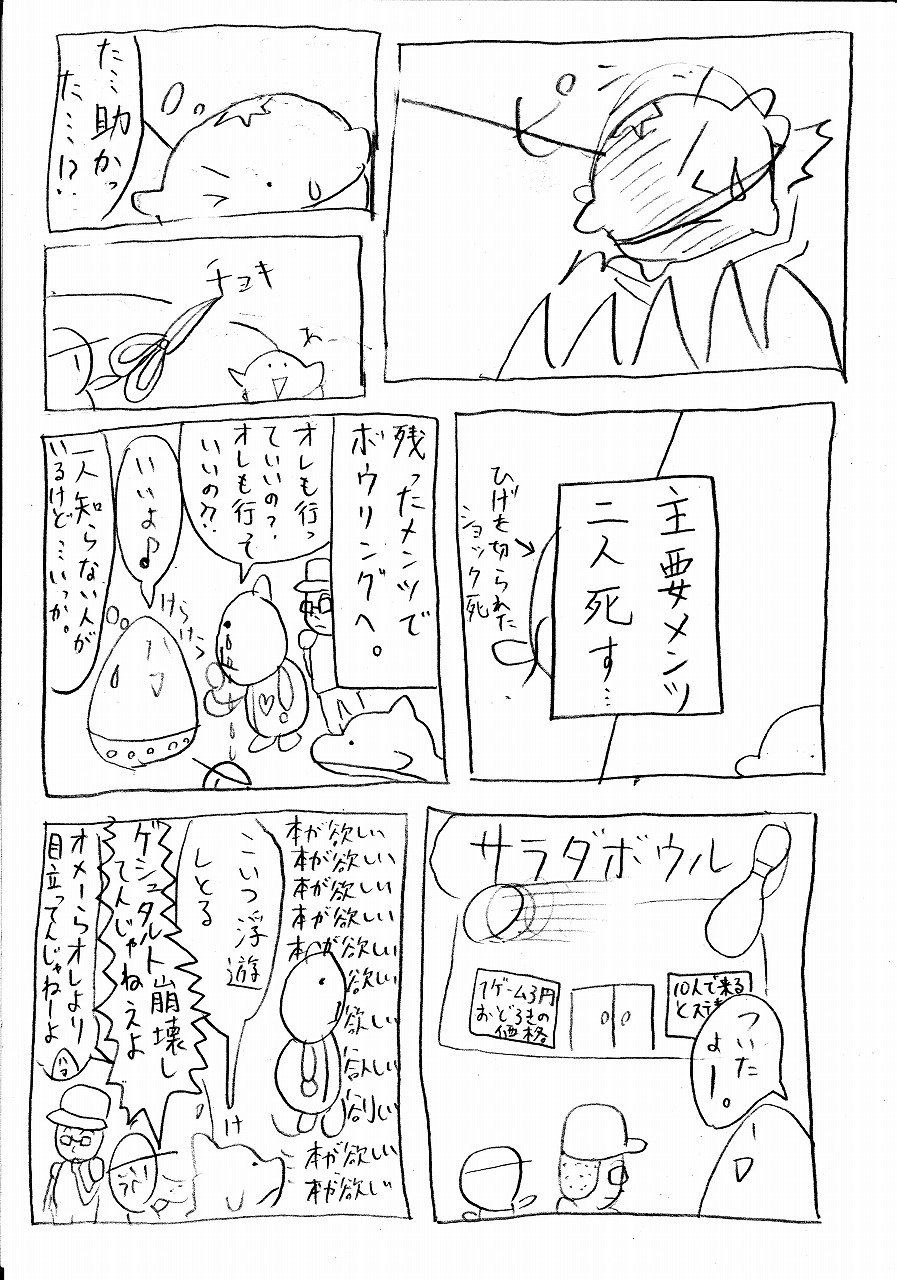 ぴ
た…助かっ
た……!?
チョキ
あー
主要メンツ
二人死す…
ひげを切られた
ショック死
残ったメンツで
ボウリングへ。
オレも行っ
ていいの?
オレも行って
いいの?
いいよ♪
けら
けら
一人知らない人が
いるけど…いっか。
サラダボウル
1ゲーム3円
おどろきの
価格
10人で来る
とステ
ついた
よー。
本が欲しい
本が欲しい
本が欲しい
本が欲しい
本が欲しい
欲しい
欲しい
欲しい
欲しい
本が欲しい
本が欲し
こいつ浮遊
しとる
ゲシュタルト崩壊し
てんじゃねえよ
オメーらオレより
目立ってんじゃねーよ
け